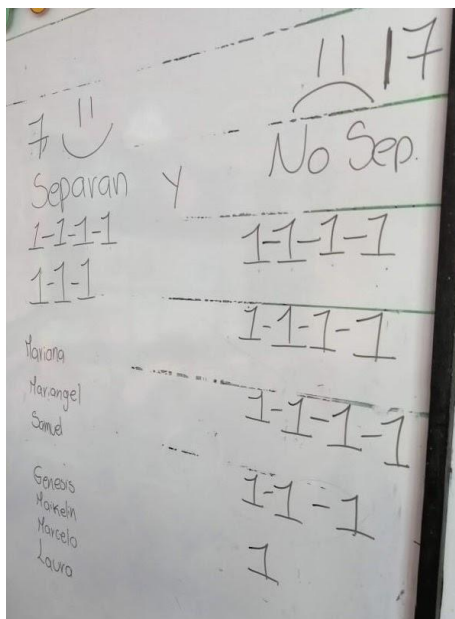 7
Separan Y
1-1-1-1
1-1-1
Mariana
Mariangel
Samuel
Genesis
Maikelin
Marcelo
Laura
17
No Sep.
1-1-1-1
1-1-1-1
1-1-1-1
1-1-1
1